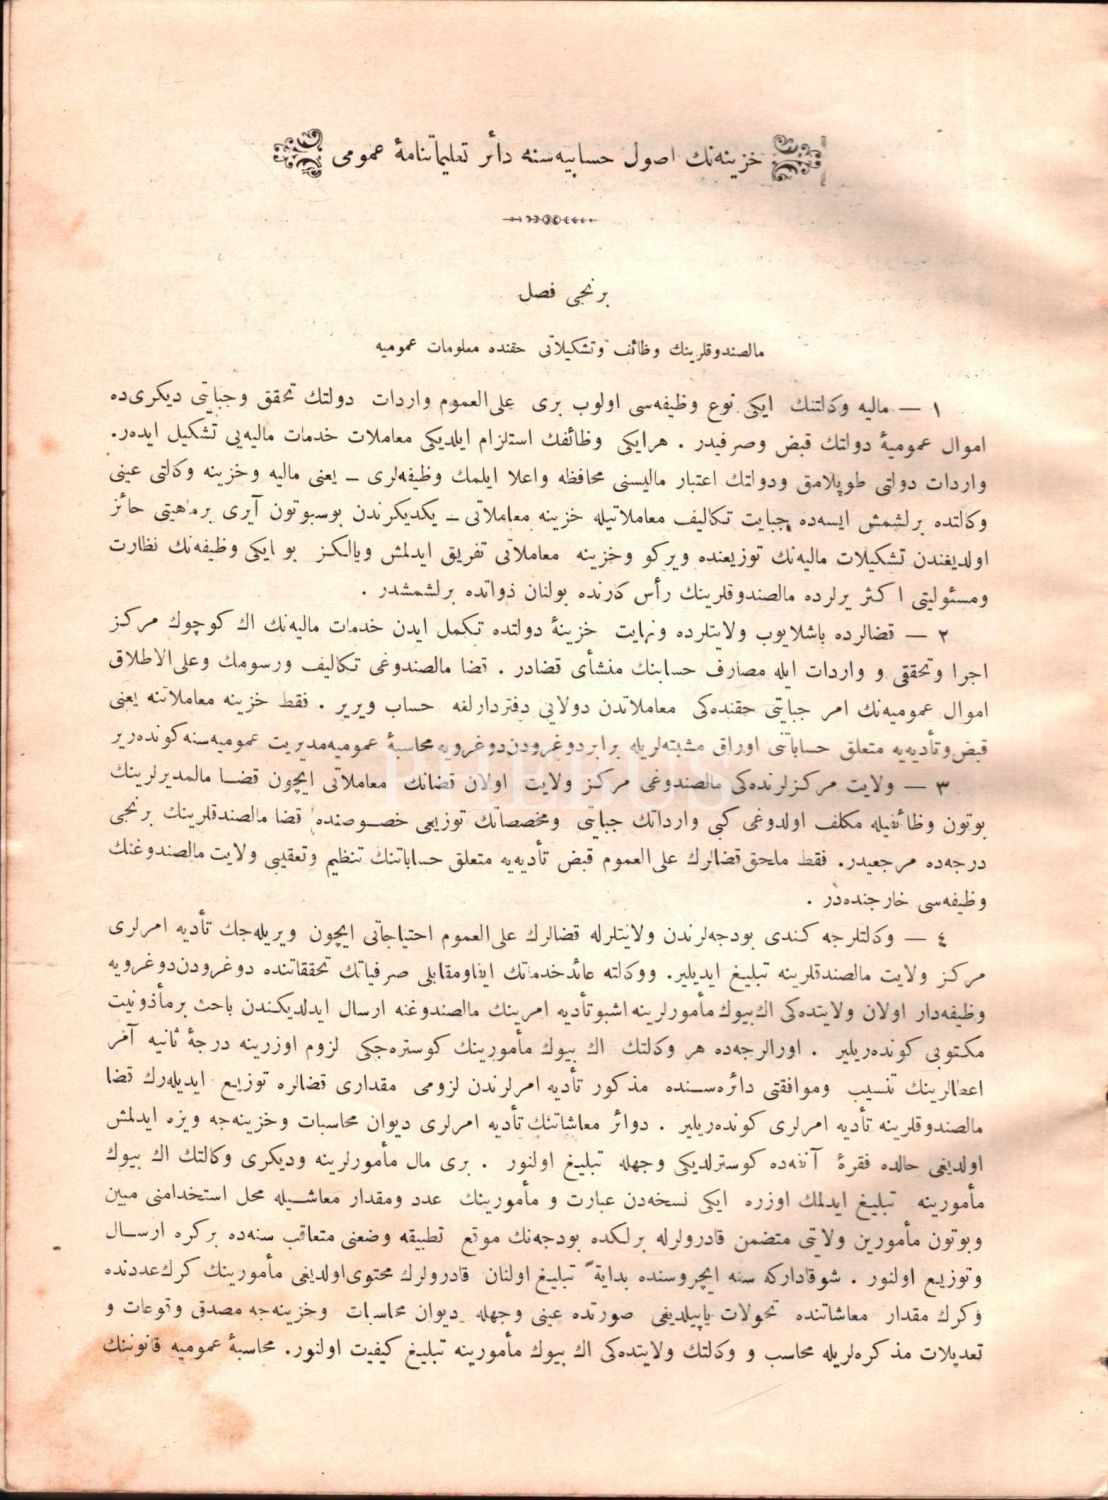 خزینه‌نك اصول حسابیه‌سنه دائر تعلیماتنامهٔ عمومی
برنجی فصل
مالصندوقلرینك وظائف وتشكیلاتی حقنده معلومات عمومیه
١ — مالیه وكالتنك ایكی نوع وظیفه‌سی اولوب بری علی‌العموم واردات دولتك تحقق وجبایتی دیكری‌ده
اموال عمومیهٔ دولتك قبض وصرفیدر . هرایكی وظائفك استلزام ایلدیكی معاملات خدمات مالیه‌یی تشكیل ایده‌ر.
واردات دولتی طوپلامق ودولتك اعتبار مالیسنی محافظه واعلا ایلمك وظیفه‌لری — یعنی مالیه وخزینه وكالتی عینی
وكالتده برلشمش ایسه‌ده جبایت تكالیف معاملاتیله خزینه معاملاتی — یكدیكرندن بوسبوتون آیری برماهیتی حائز
اولدیغندن تشكیلات مالیه‌نك توزیعنده ویركو وخزینه معاملاتی تفریق ایدلمش ویالكز بو ایكی وظیفه‌نك نظارت
ومسئولیتی اكثر یرلرده مالصندوقلرینك رأس كارنده بولنان ذواتده برلشمشدر .
٢ — قضالرده باشلایوب ولایتلرده ونهایت خزینهٔ دولتده تكمل ایدن خدمات مالیه‌نك اك كوچوك مركز
اجرا وتحققی و واردات ایله مصارف حسابنك منشأی قضادر . قضا مالصندوغی تكالیف ورسومك وعلی‌الاطلاق
اموال عمومیه‌نك امر جبایتی حقنده‌كی معاملاتدن دولایی دفتردارلغه حساب ویریر . فقط خزینه معاملاتنه یعنی
قبض وتأدیه‌یه متعلق حساباتنی اوراق مثبته‌لریله برابردوغرودن‌دوغرویه محاسبهٔ عمومیه‌مدیریت عمومیه‌سنه كونده‌ریر
٣ — ولایت مركزلرنده‌كی مالصندوغی مركز ولایت اولان قضانك معاملاتی ایچون قضا مالمدیرلرینك
بوتون وظائفیله مكلف اولدوغی كبی وارداتك جبایتی ومخصصاتك توزیعی خصوصنده قضا مالصندقلرینك برنجی
درجه‌ده مرجعیدر. فقط ملحق قضالرك علی‌العموم قبض تأدیه‌یه متعلق حساباتنك تنظیم وتعقیبی ولایت مالصندوغنك
وظیفه‌سی خارجنده‌در .
٤ — وكالتلرجه كندی بودجه‌لرندن ولایتلرله قضالرك علی‌العموم احتیاجاتی ایچون ویریله‌جك تأدیه امرلری
مركز ولایت مالصندقلرینه تبلیغ ایدیلیر. ووكالته عائدخدماتك ایفاومقابلی صرفیاتك تحققاتنده دوغرودن‌دوغرویه
وظیفه‌دار اولان ولایتده‌كی اك‌بیوك مأمورلرینه اشبوتأدیه امرینك مالصندوغنه ارسال ایدلدیكندن باحث برمأذونیت
مكتوبی كونده‌ریلیر . اورالرجه‌ده هر وكالتك اك بیوك مأمورینك كوستره‌جكی لزوم اوزرینه درجهٔ ثانیه آمر
اعطالرینك تنسیب وموافقتی دائره‌سنده مذكور تأدیه امرلرندن لزومی مقداری قضالره توزیع ایدیله‌رك قضا
مالصندوقلرینه تأدیه امرلری كونده‌ریلیر . دوائر معاشاتنك تأدیه امرلری دیوان محاسبات وخزینه‌جه ویزه ایدلمش
اولدیغی حالده فقرهٔ آنفه‌ده كوسترلدیكی وجهله تبلیغ اولنور . بری مال مأمورلرینه ودیكری وكالتك اك بیوك
مأمورینه تبلیغ ایدلمك اوزره ایكی نسخه‌دن عبارت و مأمورینك عدد ومقدار معاشیله محل استخدامنی مبین
وبوتون مأمورین ولایتی متضمن قادرولرله برلكده بودجه‌نك موقع تطبیقه وضعنی متعاقب سنه‌ده بركره ارسال
وتوزیع اولنور . شوقاداركه سنه ایچروسنده بدایةً تبلیغ اولنان قادرولرك محتوی‌اولدیغی مأمورینك كرك‌عددنده
وكرك مقدار معاشاتنده تحولات یاپیلدیغی صورتده عینی وجهله دیوان محاسبات وخزینه‌جه مصدق وقوعات و
تعدیلات مذكره‌لریله محاسب و وكالتك ولایتده‌كی اك بیوك مأمورینه تبلیغ كیفیت اولنور. محاسبهٔ عمومیه قانوننك